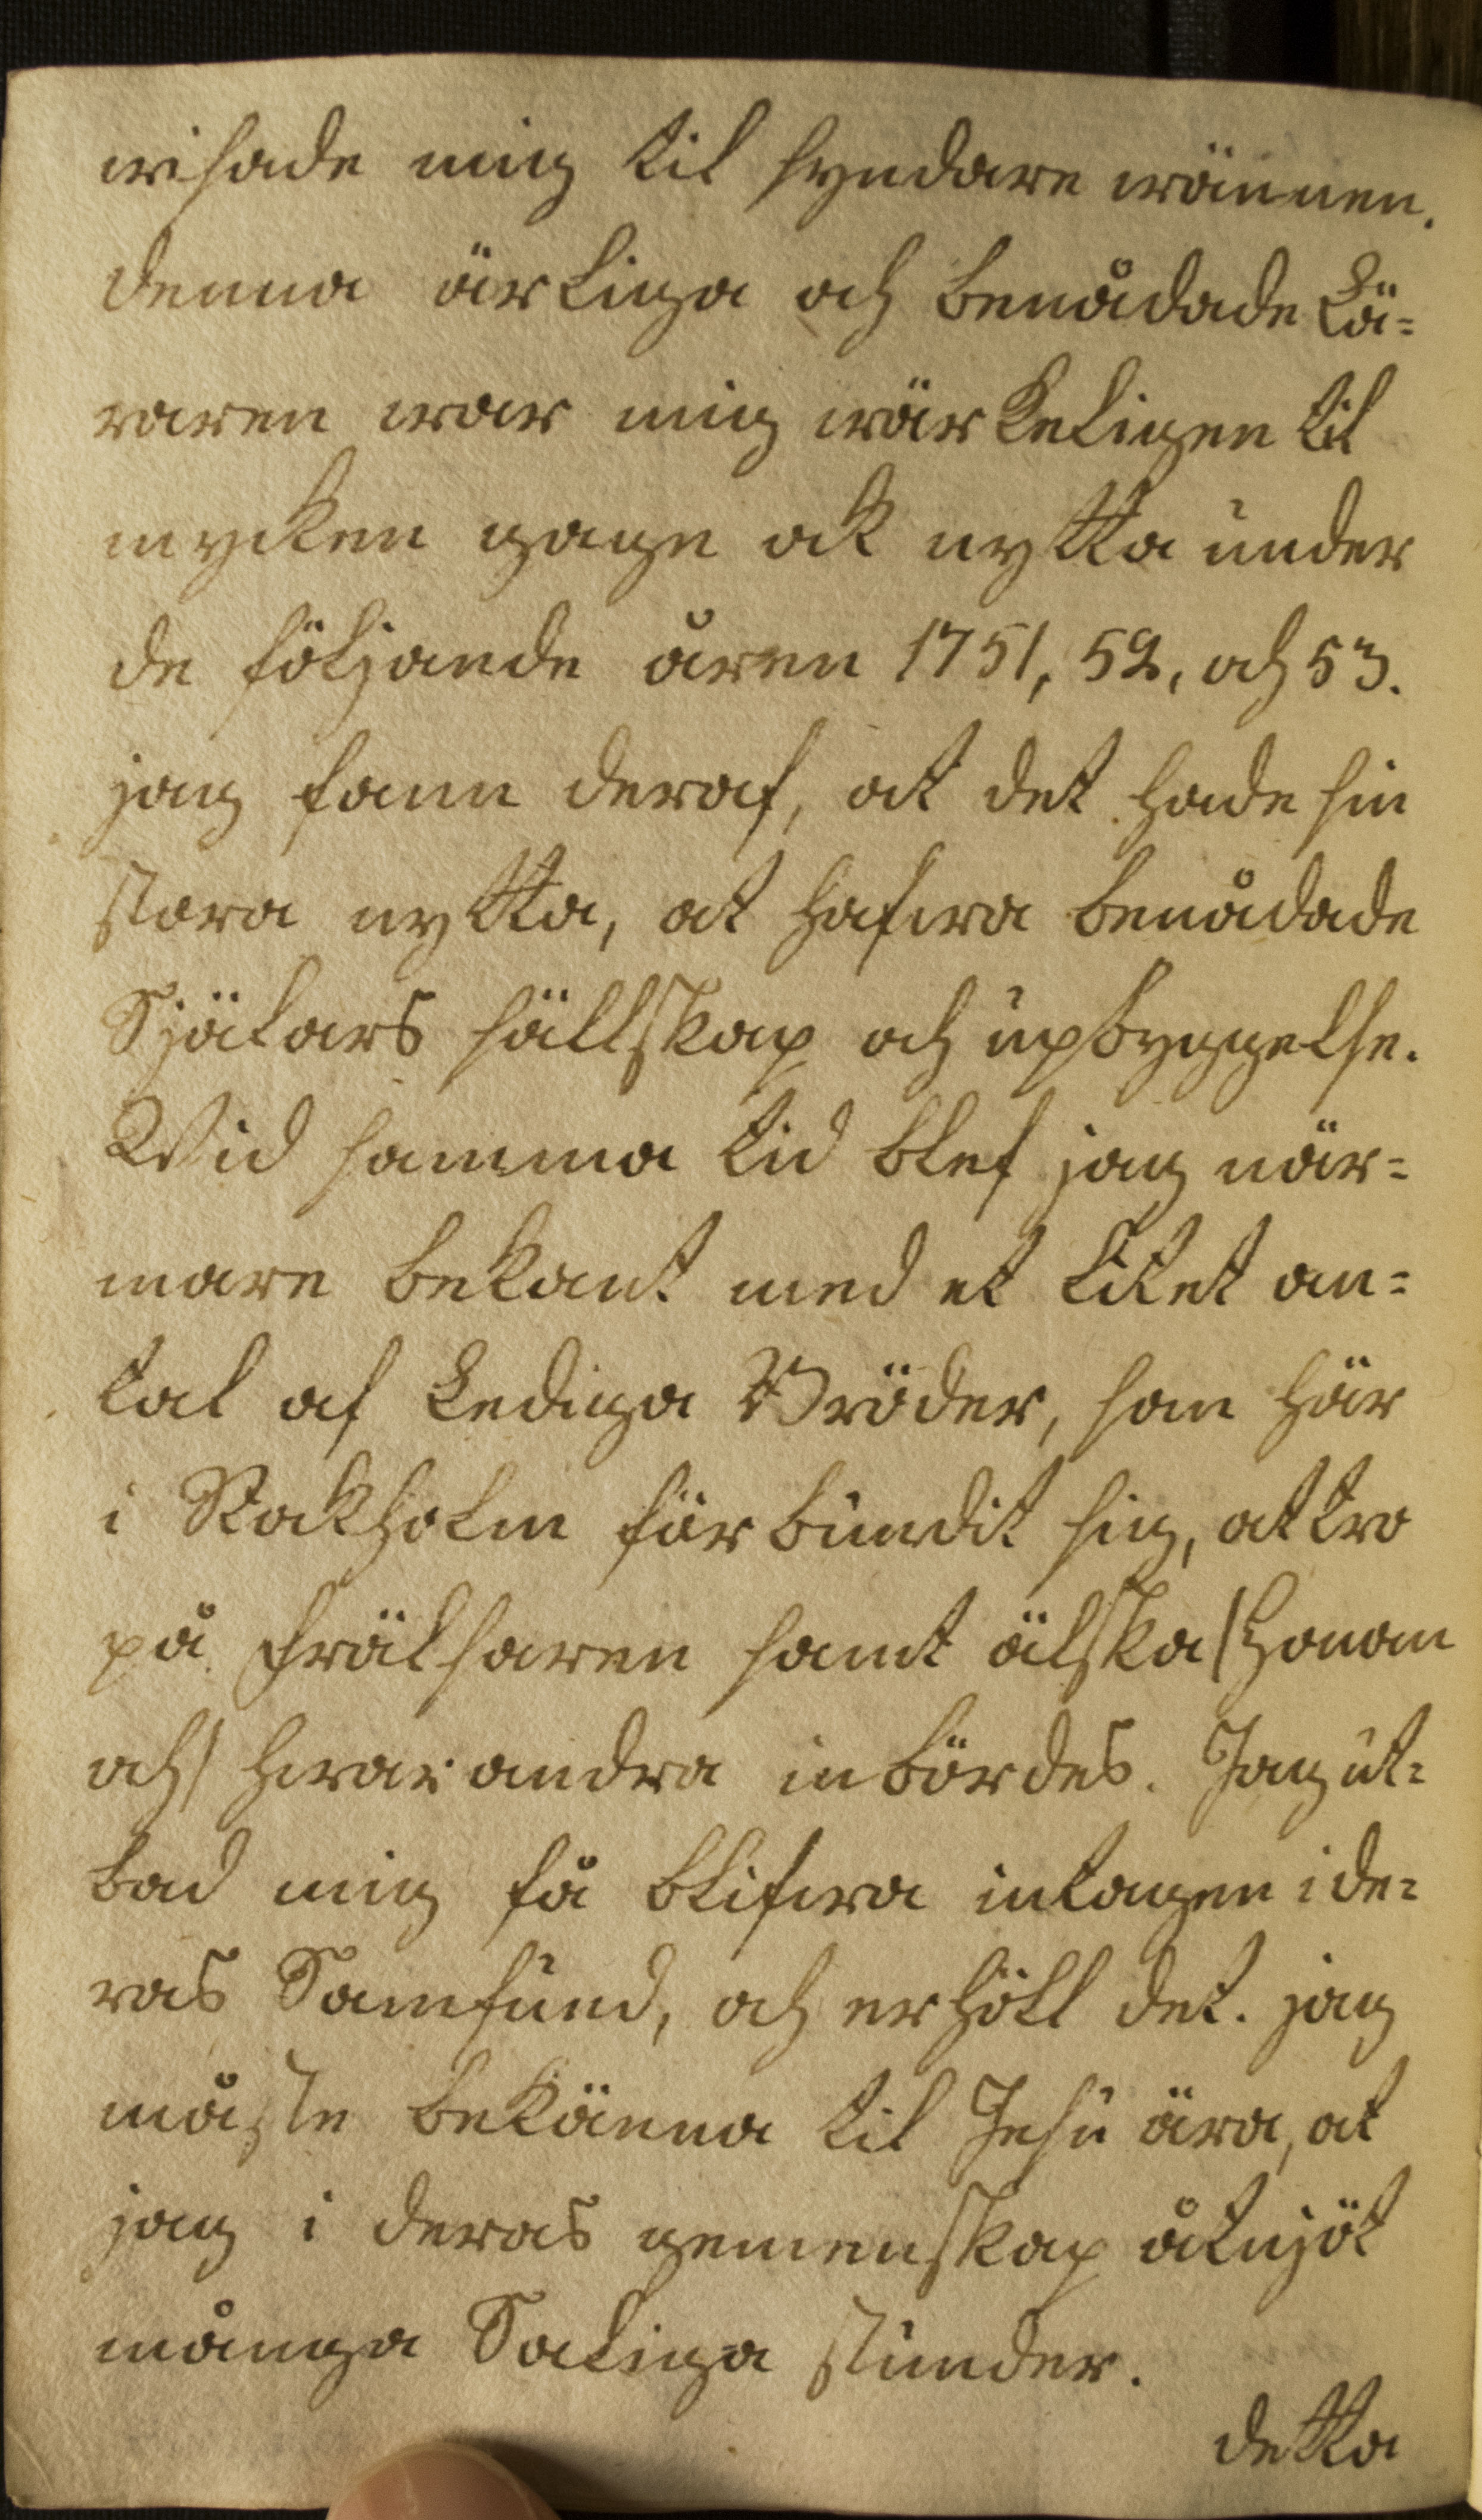 wisade mig til syndare wännen.
denna ärliga och benådade Lä-
raren war mig wärkeligen til
mycken gagn ok nytta under
de följande åren 1751, 52, och 53.
jag fann deraf, at det hade sin
stora nytta, at hafwa benådade
Själars sällskap och upbyggelse.
Wid samma tid blef jag när-
mare bekant med et litet an-
tal af Lediga Bröder, som här
i Stokholm förbundit sig, at tro
på Frälsaren samt älska /Honom
och/ hwarandra inbördes. Jag ut-
bad mig få blifwa intagen i de-
ras Samfund, och erhöll det. jag
måste bekänna til Jesu ära, at
jag i deras gemenskap åtnjöt
många Saliga stunder.
detta